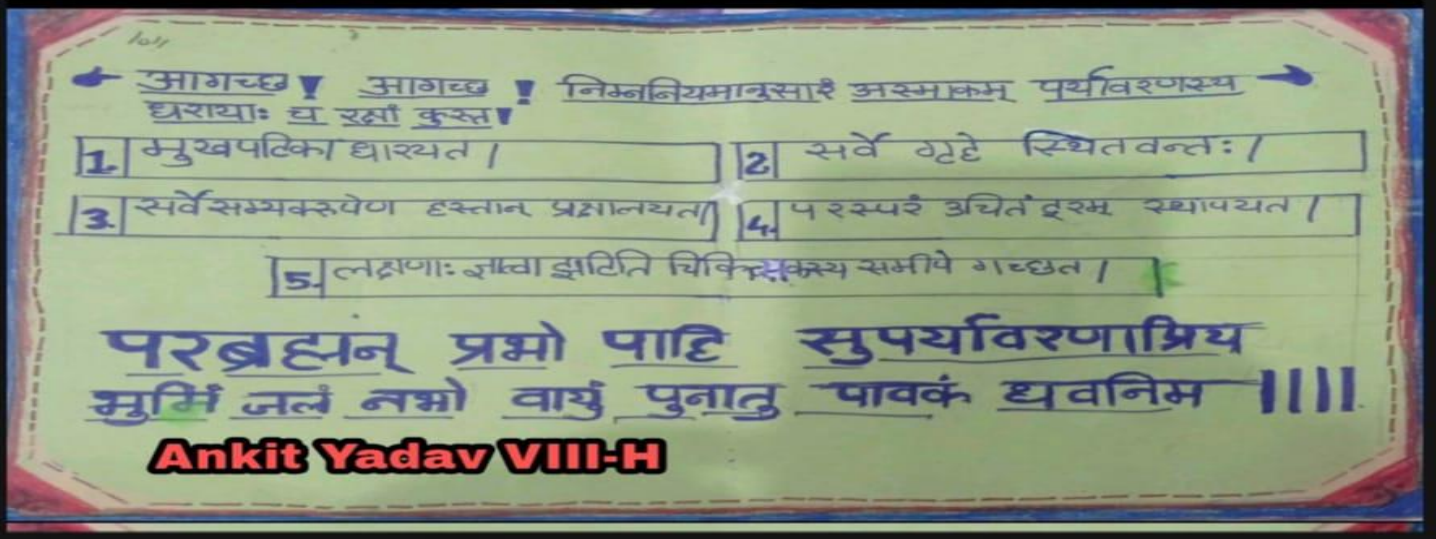 आगच्छ! आगच्छ! निम्ननियमानुसारं अस्माकम् पर्यावरणस्य
धरायाः च रक्षां कुरुत!
1. मुखपटिका धारयत।
2. सर्वे गृहे स्थितवन्तः।
3. सर्वे सम्यक्रूपेण हस्तान् प्रक्षालयत।
4. परस्परं उचितं दूरम् स्थापयत।
5. लक्षणाः ज्ञात्वा झटिति चिकित्सकस्य समीपे गच्छत।
परब्रह्मन् प्रभो पाहि सुपर्यावरणाप्रिय
भुमिं जलं नभो वायुं पुनातु पावकं ध्वनिम ||||
Ankit Yadav VIII-H